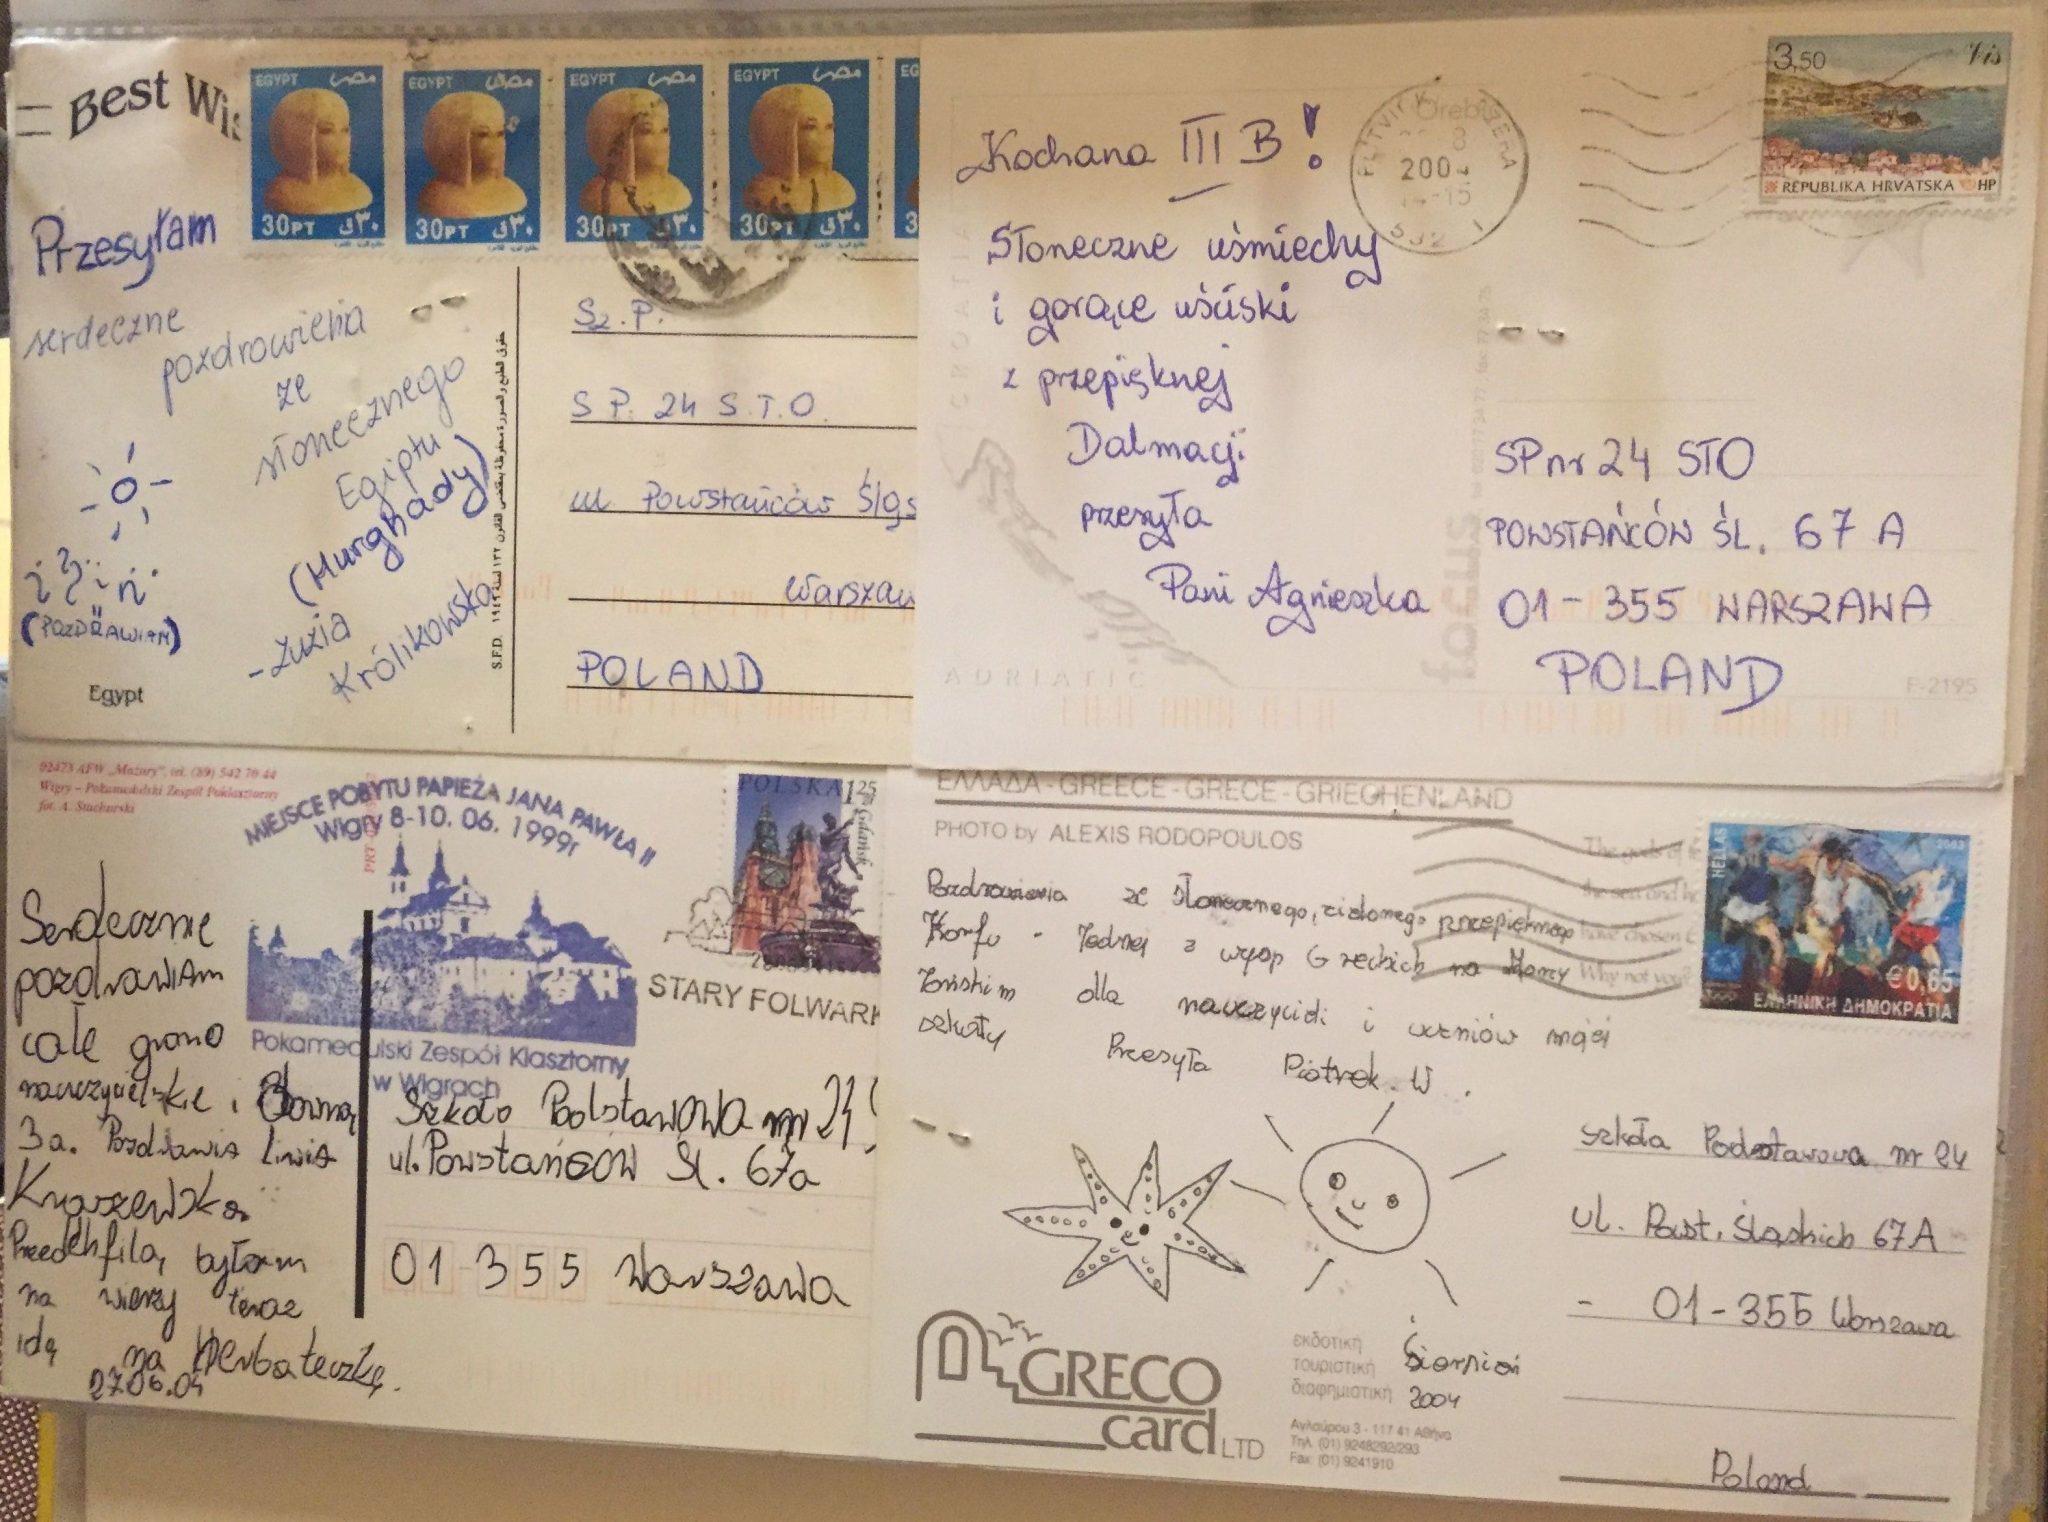 Best Wis
EGYPT مصر
30PT ٣٠ق
EGYPT مصر
30PT ٣٠ق
EGYPT مصر
30PT ٣٠ق
EGYPT مصر
30PT ٣٠ق
EG
3
Przesyłam
serdeczne
pozdrowienia
ze
słonecznego
Egiptu
(Hurghady)
-Zuzia
Królikowska
(POZDRAWIAM)
Egypt
S.F.D.
Sz.P.
SP. 24 S.T.O.
ul PowstańcówŚląs
Warszaw
POLAND
Kochana III B!
Słoneczne uśmiechy
i gorące uściski
z przepięknej
Dalmacji
przesyła
Pani Agnieszka
3,50 Vis
REPUBLIKA HRVATSKA HP
CROATIA
ADRIATIC
SP nr 24 STO
POWSTAŃCÓW ŚL. 67 A
01-355 WARSZAWA
POLAND
F-2195
02473 AFW „Mazury", tel. (89) 542 70 44
Wigry - Pokamedulski Zespół Poklasztorny
fot. A. Stachurski
MIEJSCE POBYTU PAPIEŻA JANA PAWŁA II
Wigry 8-10. 06. 1999r
Pokamedulski Zespół Klasztorny
w Wigrach
POLSKA 1 25 zł
Gdańsk
STARY FOLWARK
Serdecznie
pozdrawiam
całe grono
nauczycielskie i
3a. Pozdrawia Liwia
Przed chfilą byłam
na wierzy teraz
idę na Herbateczkę.
27.06.04
Szkoła Podstawowa nr 24!
ul. Powstańców Śl. 67a
01 355 Warszawa
ΕΛΛΑΔΑ - GREECE - GRECE - GRIECHENLAND
PHOTO by ALEXIS RODOPOULOS
Pozdrowienia ze słonecznego, zielonego przepięknego
Korfu - Jednej z wysp Greckich na Morzy
Jońskim dla nauczycieli i uczniów mojej
szkoły Przesyła Piotrek. W.
HELLAS 2003
€0,65
ΕΛΛΗΝΙΚΗ ΔΗΜΟΚΡΑΤΙΑ
szkoła Podstawowa nr 24
ul. Powst. Śląskich 67A
- 01-355 Warszawa
Poland
GRECO
card LTD
εκδοτική
τουριστική
διαφημιστική
Sierpień
2004
Αγλαύρου 3 - 117 41 Αθήνα
Τηλ. (01) 9248292/293
Fax: (01) 9241910